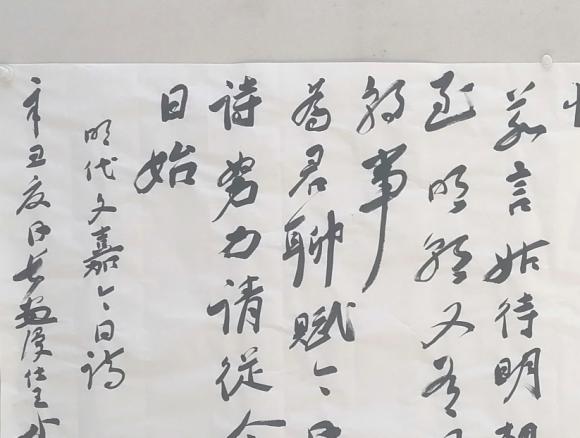 若言姑待明朝
至明朝又有
朝事
為君聊賦今日
詩努力請從今
日始
明代文嘉今日詩
辛丑夏日